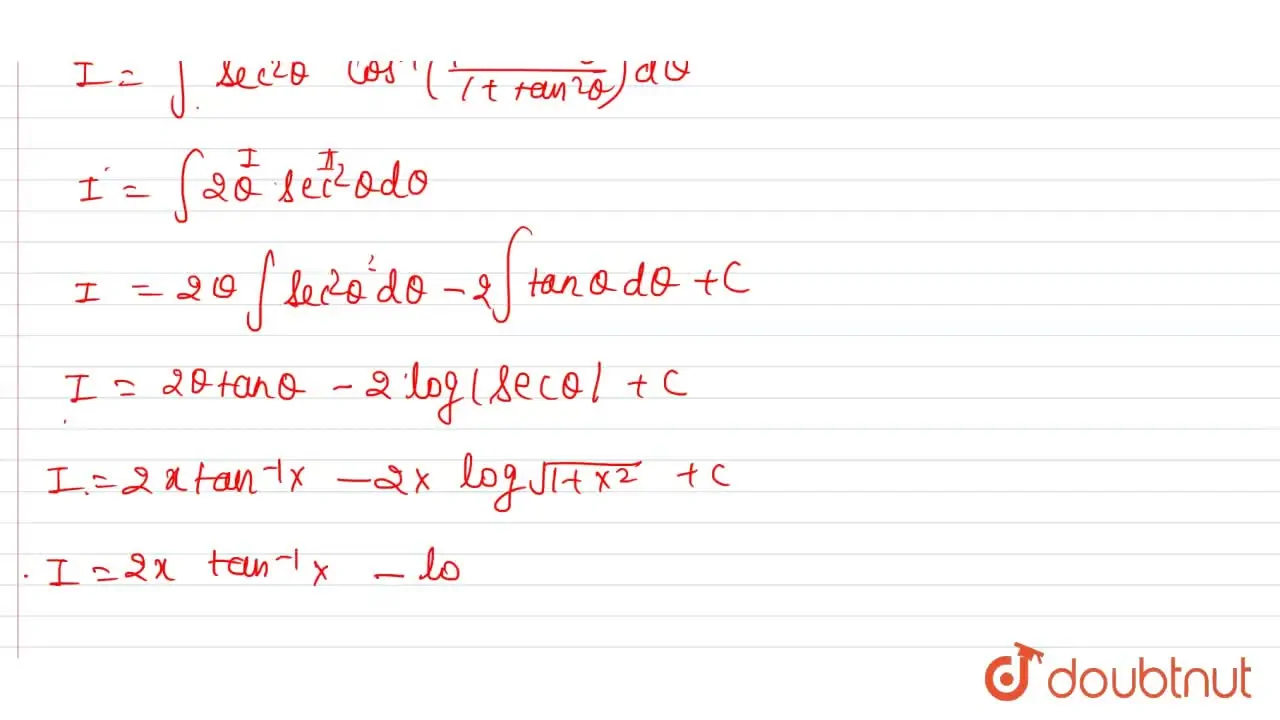 I = ∫ sec²θ cos⁻¹( / 1+tan²θ) dθ
I II
I = ∫ 2θ sec²θ dθ
I = 2θ ∫ sec²θ dθ − 2 ∫ tanθ dθ + C
I = 2θ tanθ − 2 log|secθ| + C
I = 2x tan⁻¹x − 2x log√1+x² + C
I = 2x tan⁻¹x − lo
doubtnut